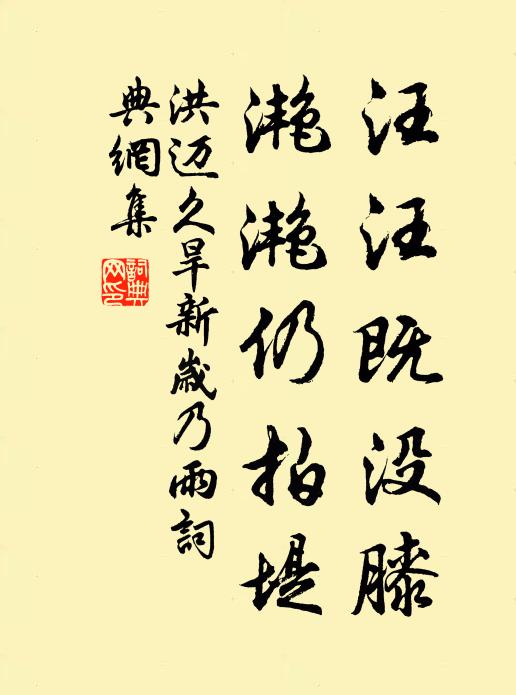 汪汪既没滕
滟滟仍拍堤
洪迈久旱新歲乃雨詞
典網集
詞典
网印